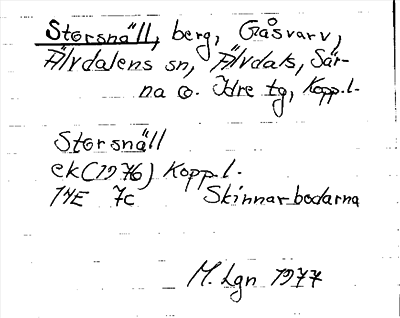 Storsnäll, berg, Gåsvarv,
Älvdalens sn, Älvdals, Sär-
na o. Idre tg, Kopp.l.
Storsnäll
ek (1976) Kopp.l.
14E 7c Skinnarbodarna
M. Lgn 1977